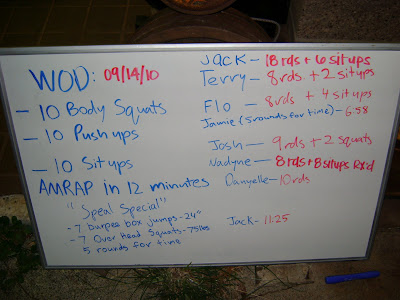 WOD: 09/14/10
- 10 Body Squats
- 10 Push ups
- 10 Sit ups
AMRAP in 12 minutes
"Speal Special"
- 7 burpee box jumps - 24"
- 7 Over Head Squats - 75lbs
5 rounds for time
Jack - 18 rds + 6 sit ups
Terry - 8 rds. + 2 sit ups
Flo - 8 rds + 4 sit ups
Jamie (5 rounds for time) - 6:58
Josh - 9 rds + 2 squats
Nadyne - 8 rds + 8 sit ups Rx'd
Danyelle - 10 rds
Jack - 11:25